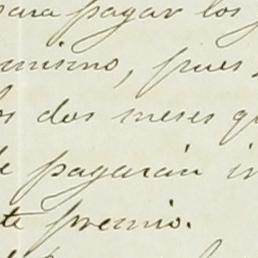 para pagar los
mismo, pues
los dos meses
pagarán
te premio.